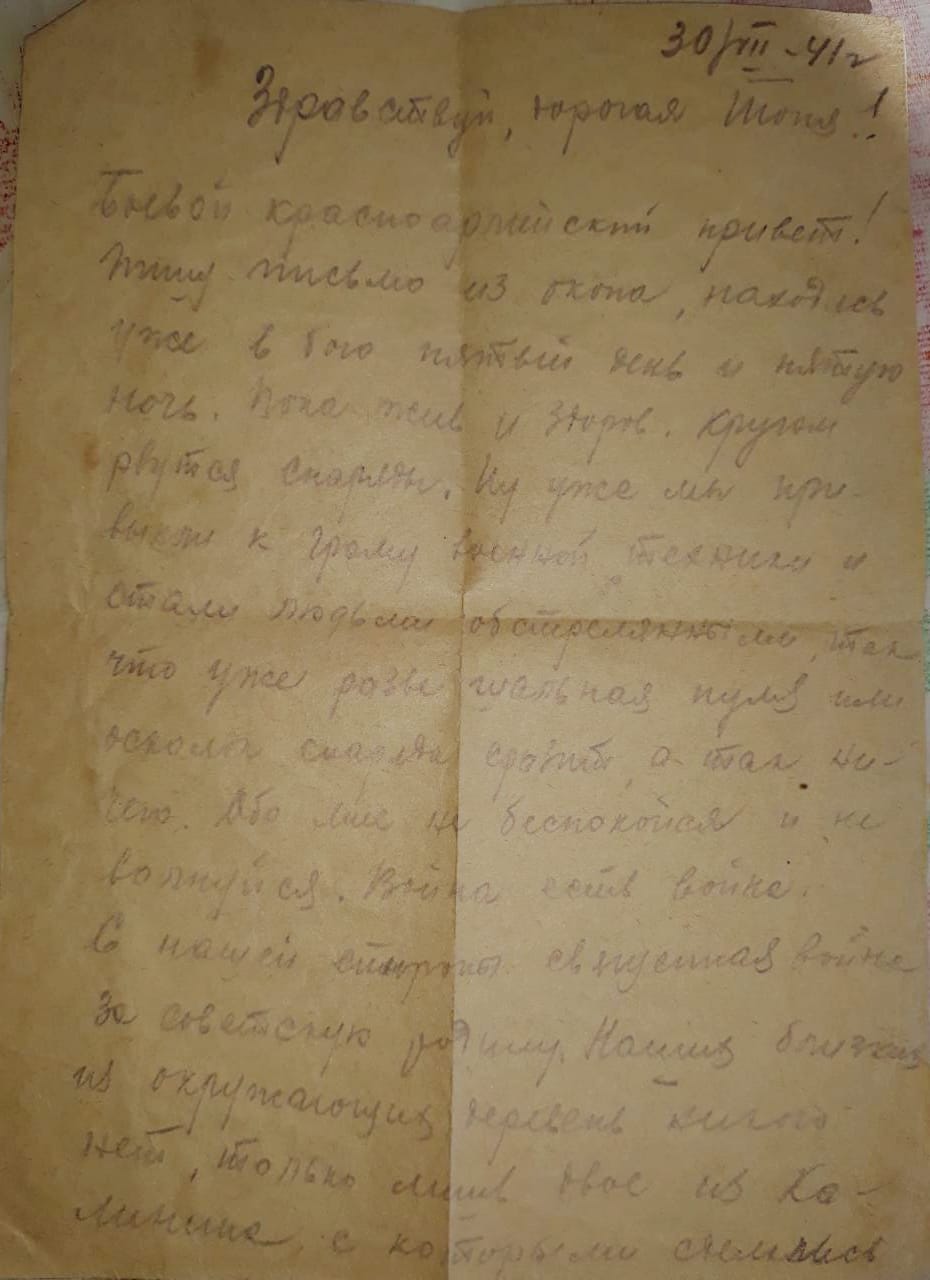 30/VII-41г
Здравствуй, дорогая Тоня!
Боевой красноармейский привет!
Пишу письмо из окопа, находясь
уже в бою пятый день и пятую
ночь. Пока жив и здоров. Кругом
рвутся снаряды. Ну уже мы при-
выкли к грому военной техники и
стали людьми обстрелянными, так
что уже разве шальная пуля или
осколок снаряда сразит, а так ни-
чего. Обо мне не беспокойся и не
волнуйся. Война есть война.
С нашей стороны священная война
за советскую родину. Наших близких
из окружающих деревень никого
нет, только лишь двое из Ка-
линина, с которыми